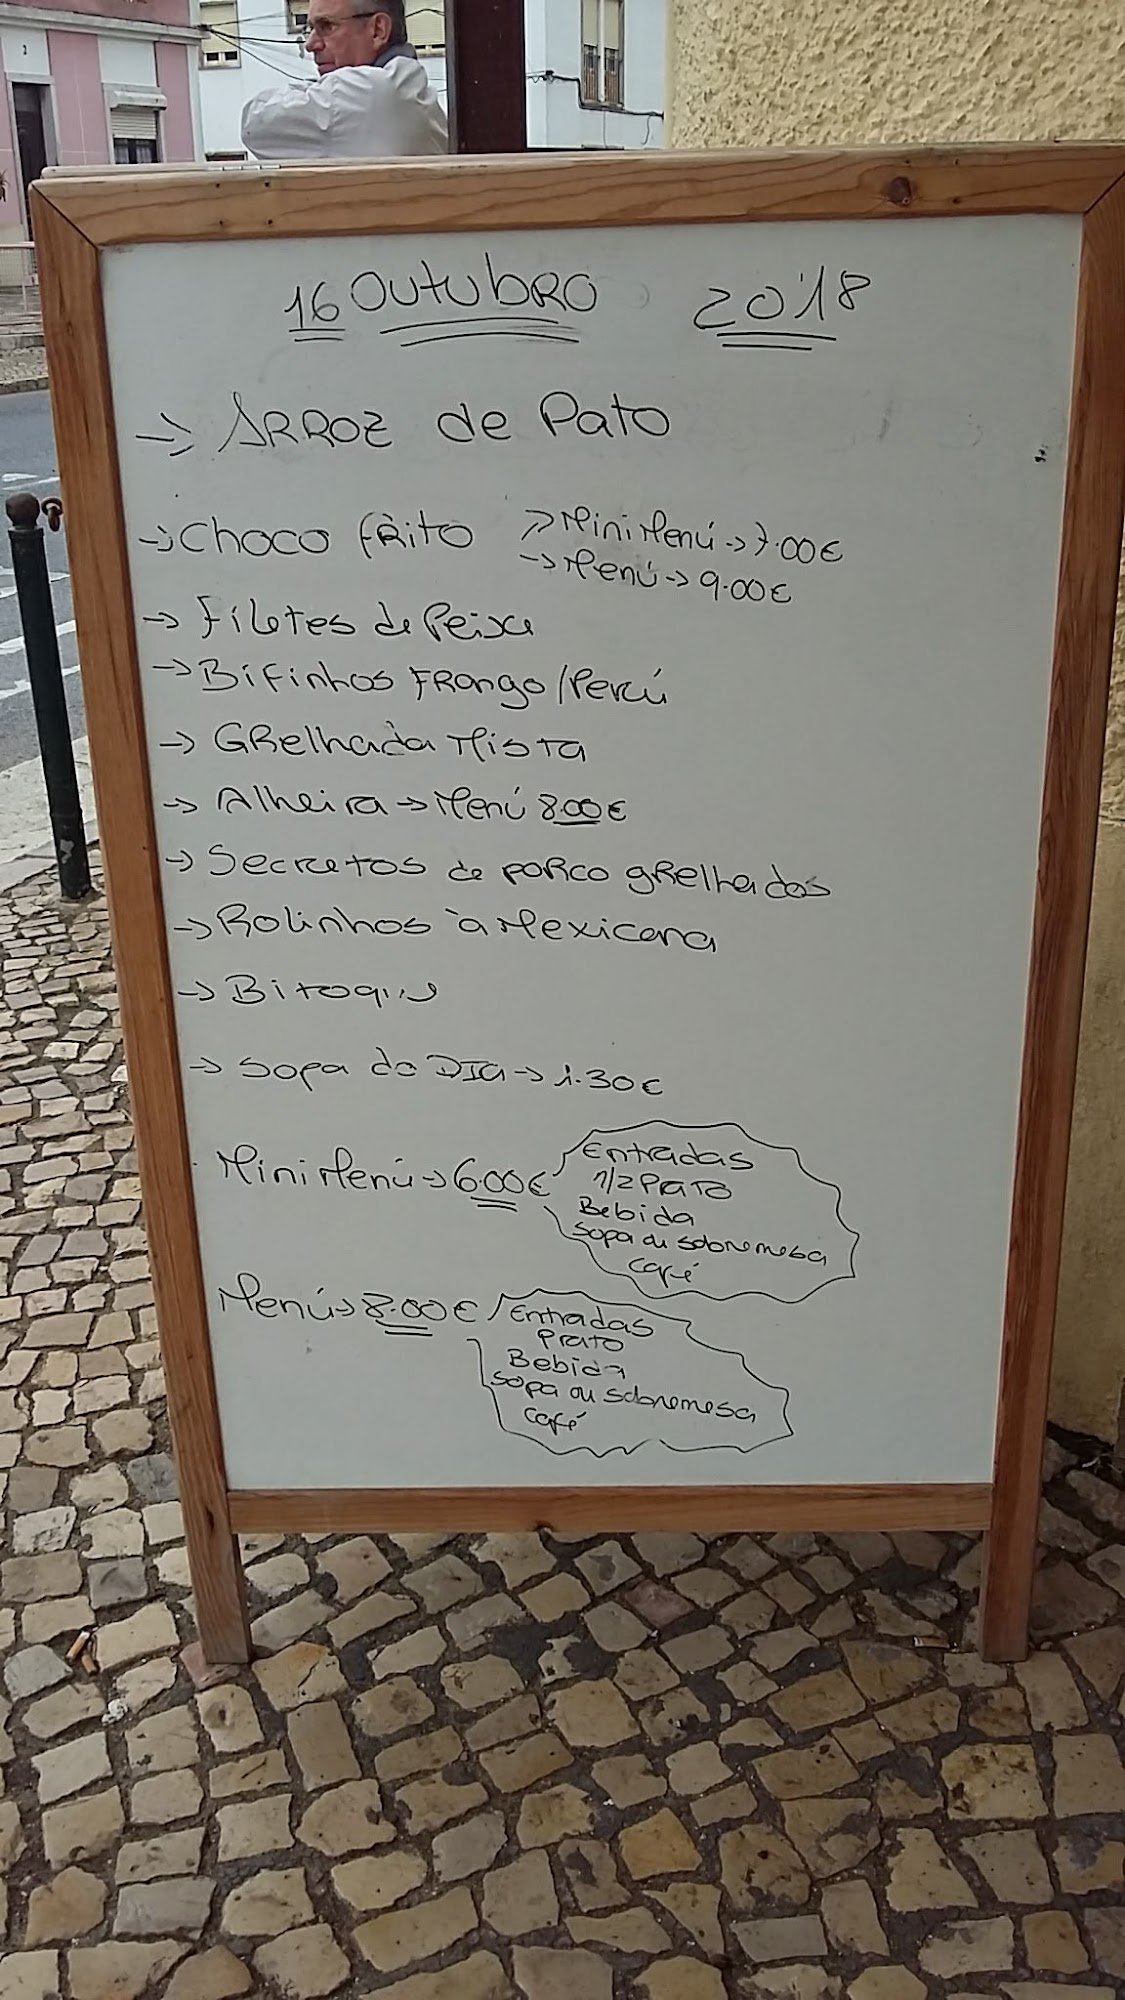 16 Outubro 2018
→ Arroz de Pato
→ Choco frito → Mini Menú → 7.00€
→ Menú → 9.00€
→ Filetes de Peixe
→ Bifinhos Frango/Perú
→ Grelhada Mista
→ Alheira → Menú 8.00€
→ Secretos de porco grelhados
→ Rolinhos à Mexicana
→ Bitoque
→ Sopa do DIA → 1.30€
Mini Menú → 6.00€
Entradas
1/2 Prato
Bebida
Sopa ou sobremesa
Café
Menú → 8.00€
Entradas
Prato
Bebida
Sopa ou sobremesa
Café